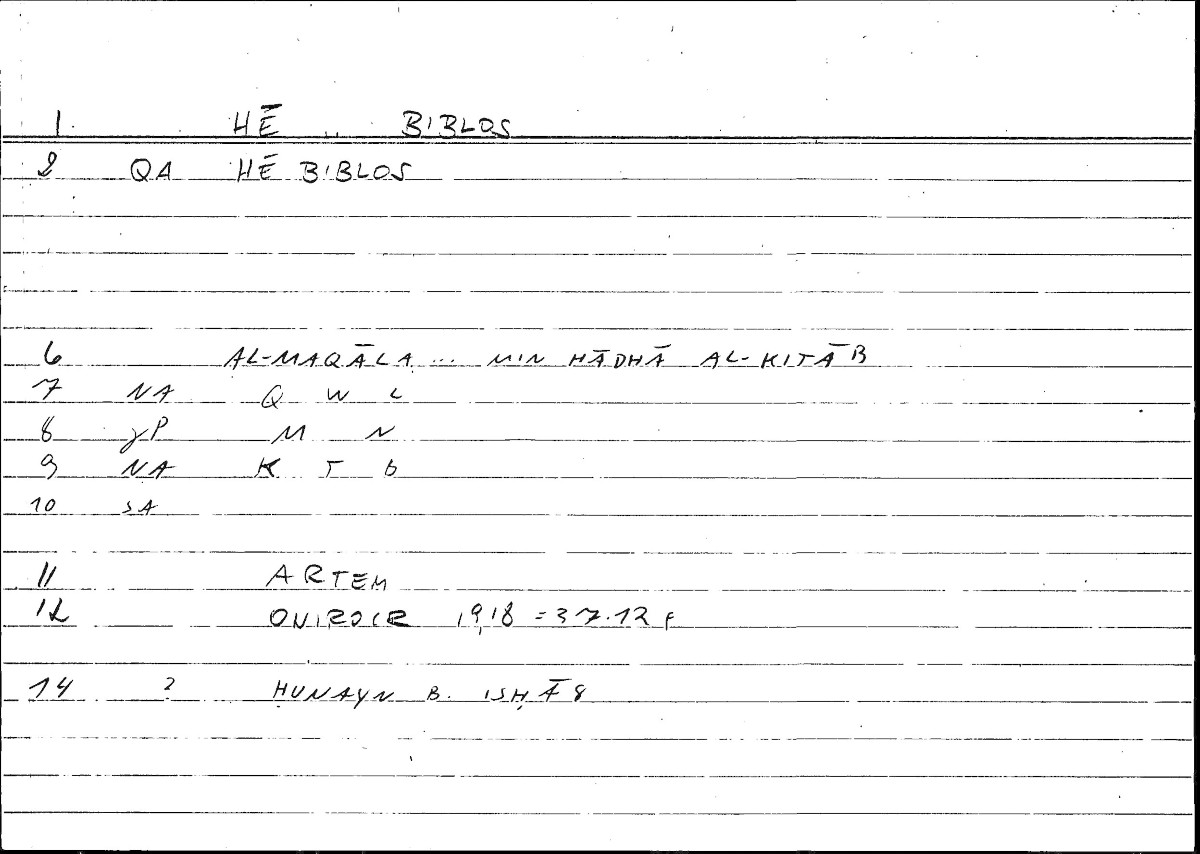 1 HĒ .. BIBLOS
2 QA HĒ BIBLOS
6 AL-MAQĀLA ... MIN HĀDHĀ AL-KITĀB
7 NA Q W L
8 γP M N
9 NA K T B
10 SA
11 ARTEM
12 ONIROCR 19,18 = 37.12 f
14 ? ḤUNAYN B. ISḤĀ8